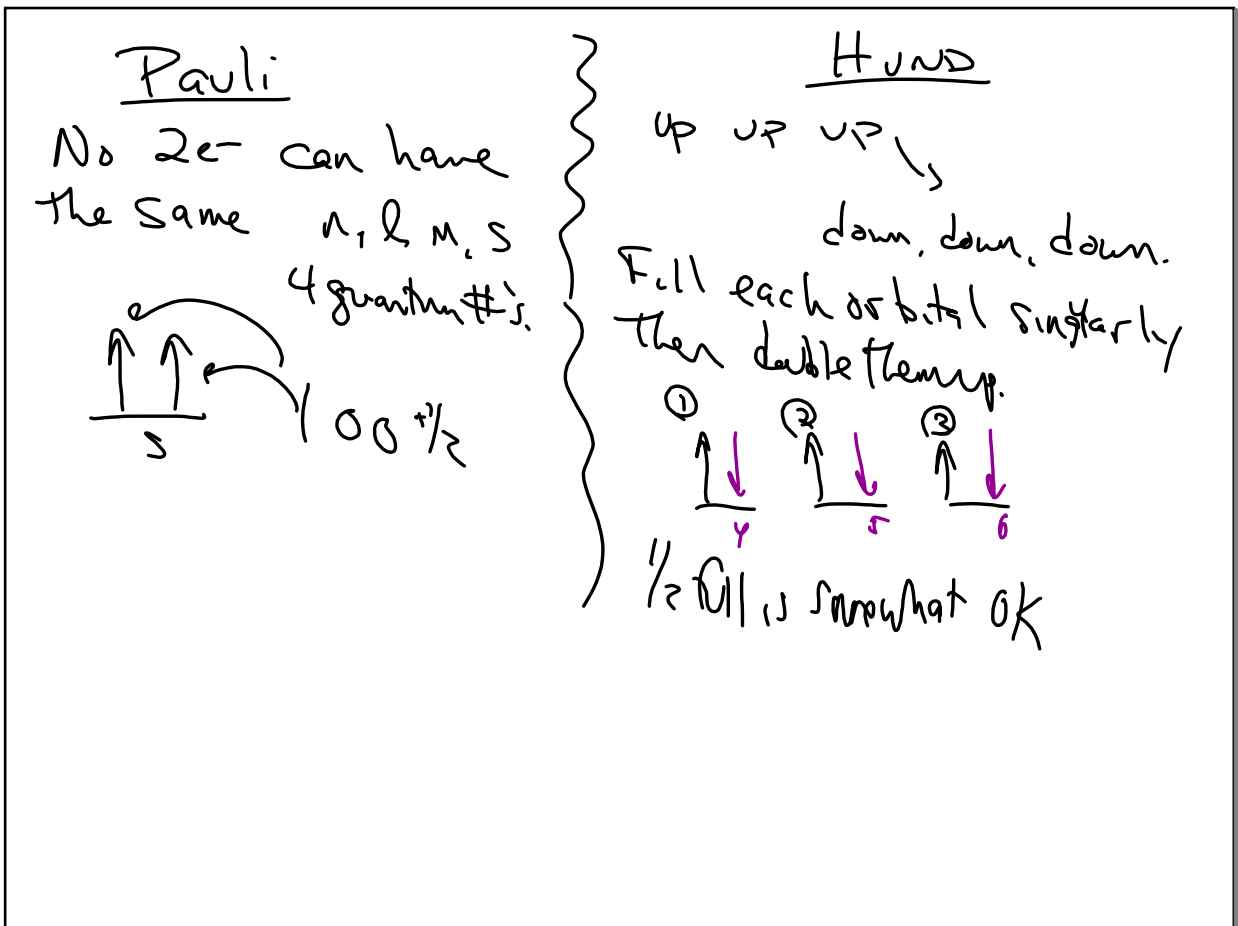 Pauli
No 2e- can have
the same n, l, m, s
4 quantum #'s.
s
1 0 0 +1/2
HUND
up up up
down, down, down.
Fill each orbital singularly
then double them up.
① ② ③
4 5 6
1/2 full is somewhat OK